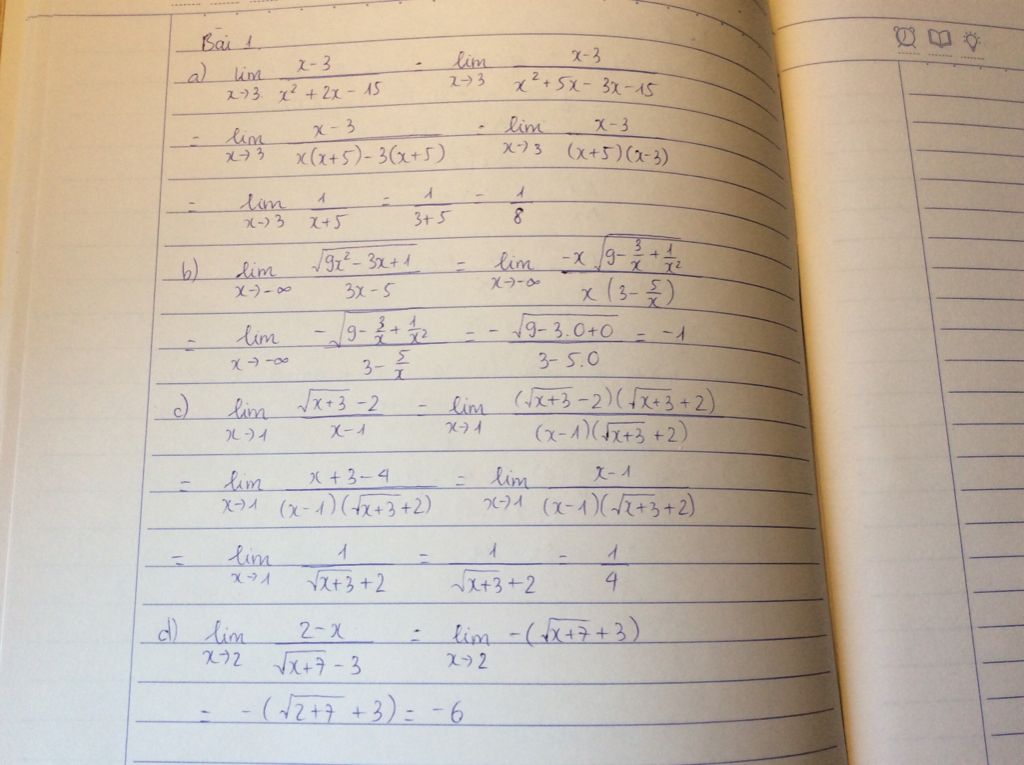 Bài 1.
a) lim x→3 (x-3)/(x² + 2x - 15) = lim x→3 (x-3)/(x² + 5x - 3x - 15)
= lim x→3 (x-3)/(x(x+5) - 3(x+5)) = lim x→3 (x-3)/((x+5)(x-3))
= lim x→3 1/(x+5) = 1/(3+5) = 1/8
b) lim x→-∞ √(9x² - 3x + 1)/(3x - 5) = lim x→-∞ -x√(9 - 3/x + 1/x²)/(x(3 - 5/x))
= lim x→-∞ -√(9 - 3/x + 1/x²)/(3 - 5/x) = - √(9 - 3.0 + 0)/(3 - 5.0) = -1
c) lim x→1 (√(x+3) - 2)/(x-1) = lim x→1 (√(x+3) - 2)(√(x+3) + 2)/((x-1)(√(x+3) + 2))
= lim x→1 (x + 3 - 4)/((x-1)(√(x+3) + 2)) = lim x→1 (x-1)/((x-1)(√(x+3) + 2))
= lim x→1 1/(√(x+3) + 2) = 1/(√(x+3) + 2) = 1/4
d) lim x→2 (2-x)/(√(x+7) - 3) = lim x→2 -(√(x+7) + 3)
= -(√(2+7) + 3) = -6